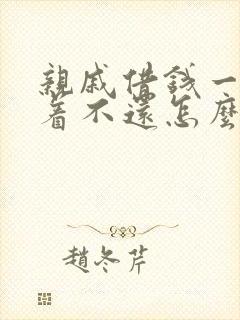 親戚借錢一
著不還怎麼
趙冬芹